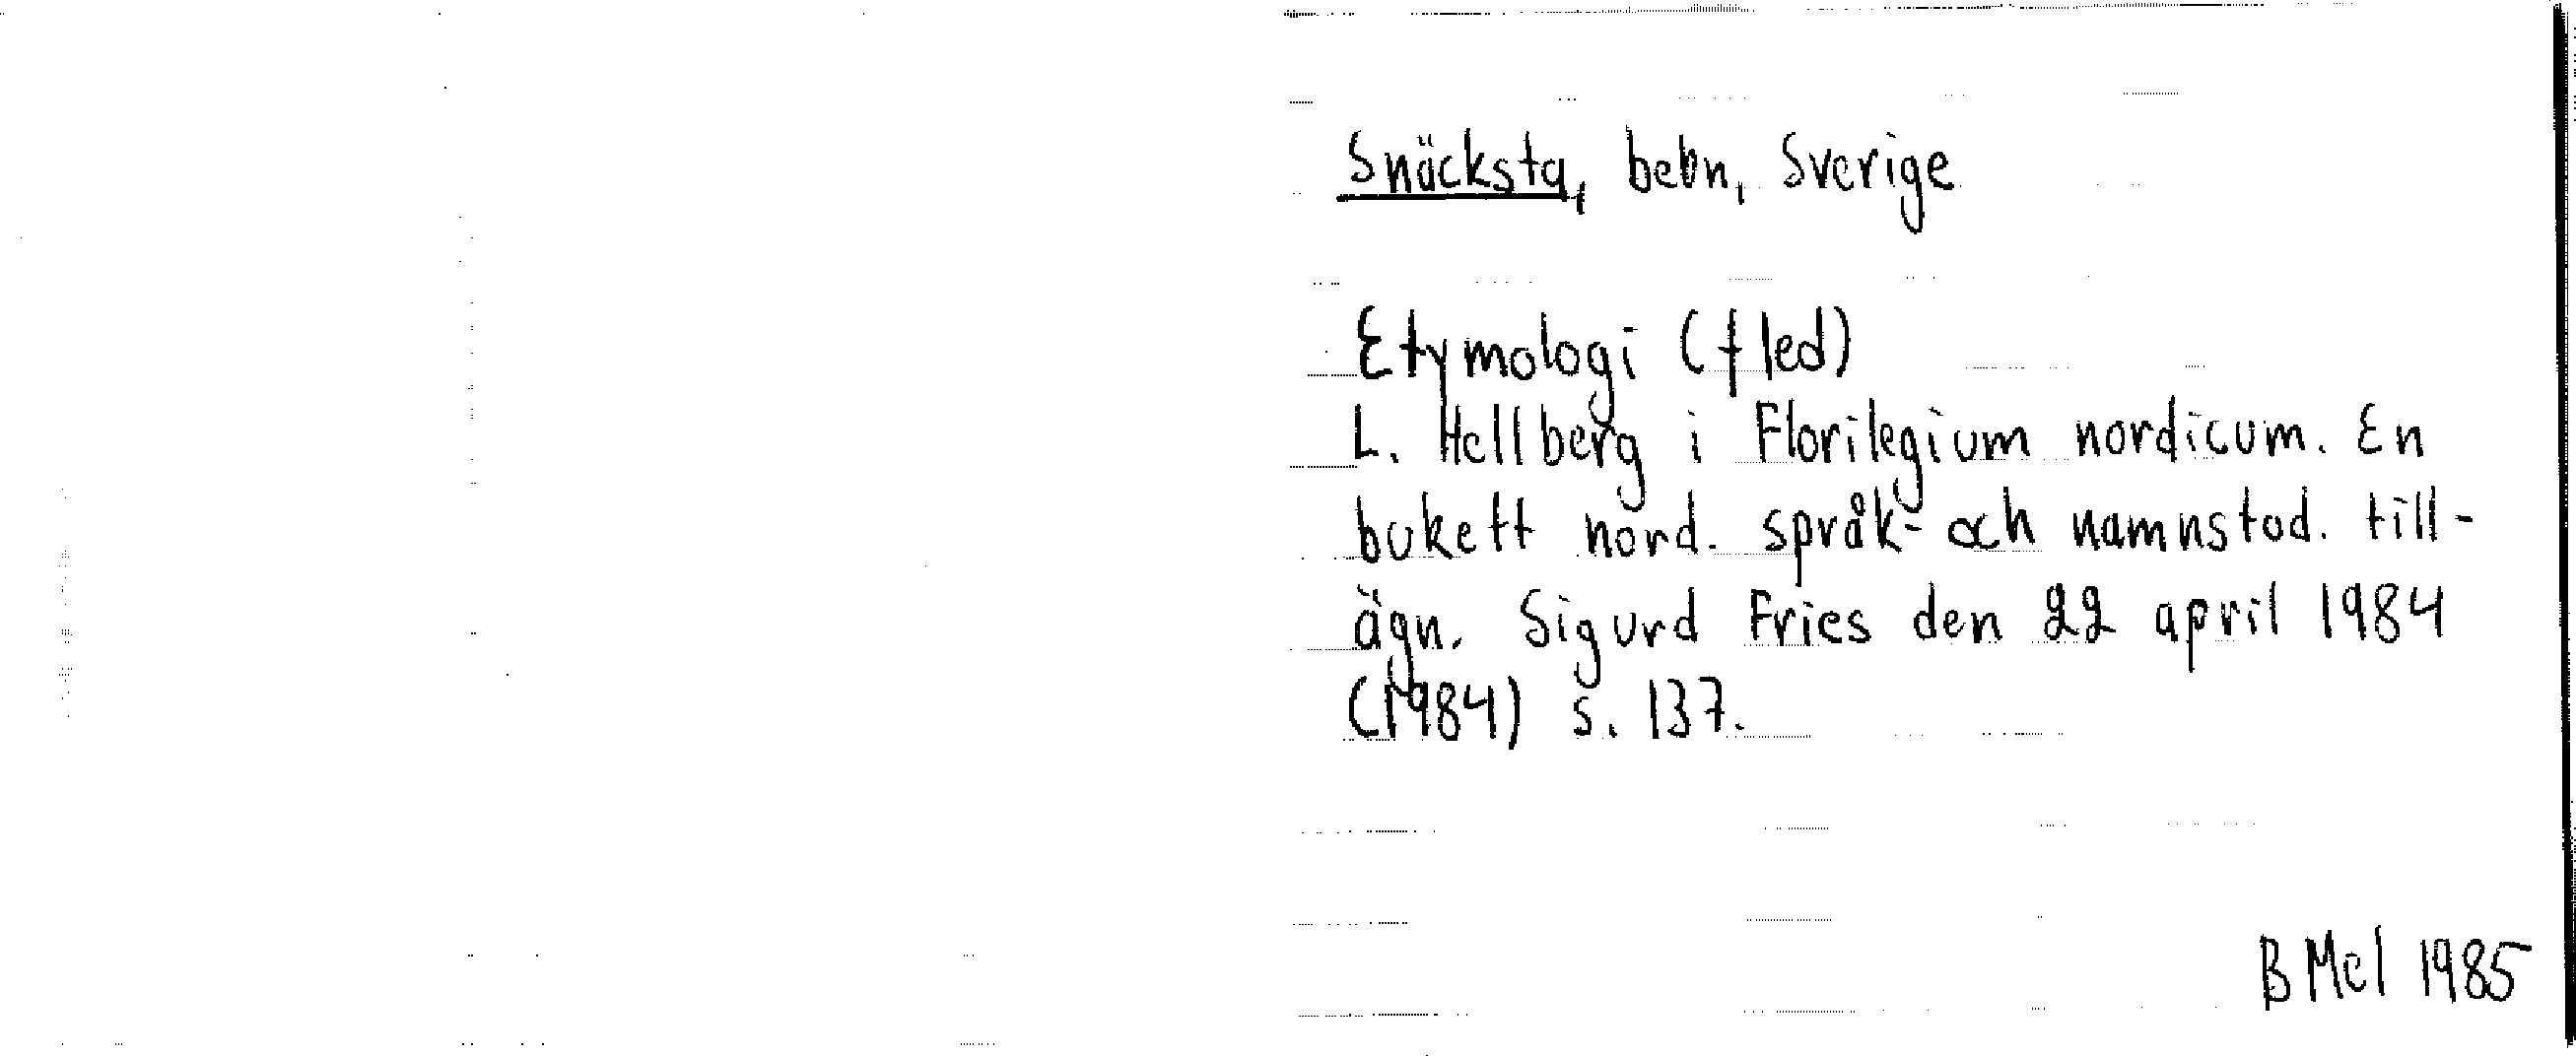 Snäcksta, bebn, Sverige
Etymologi (f led)
L. Hellberg i Florilegium nordicum. En
bukett nord. språk- och namnstud. till-
ägn. Sigurd Fries den 22 april 1984
(1984) s. 137.
B Mel 1985